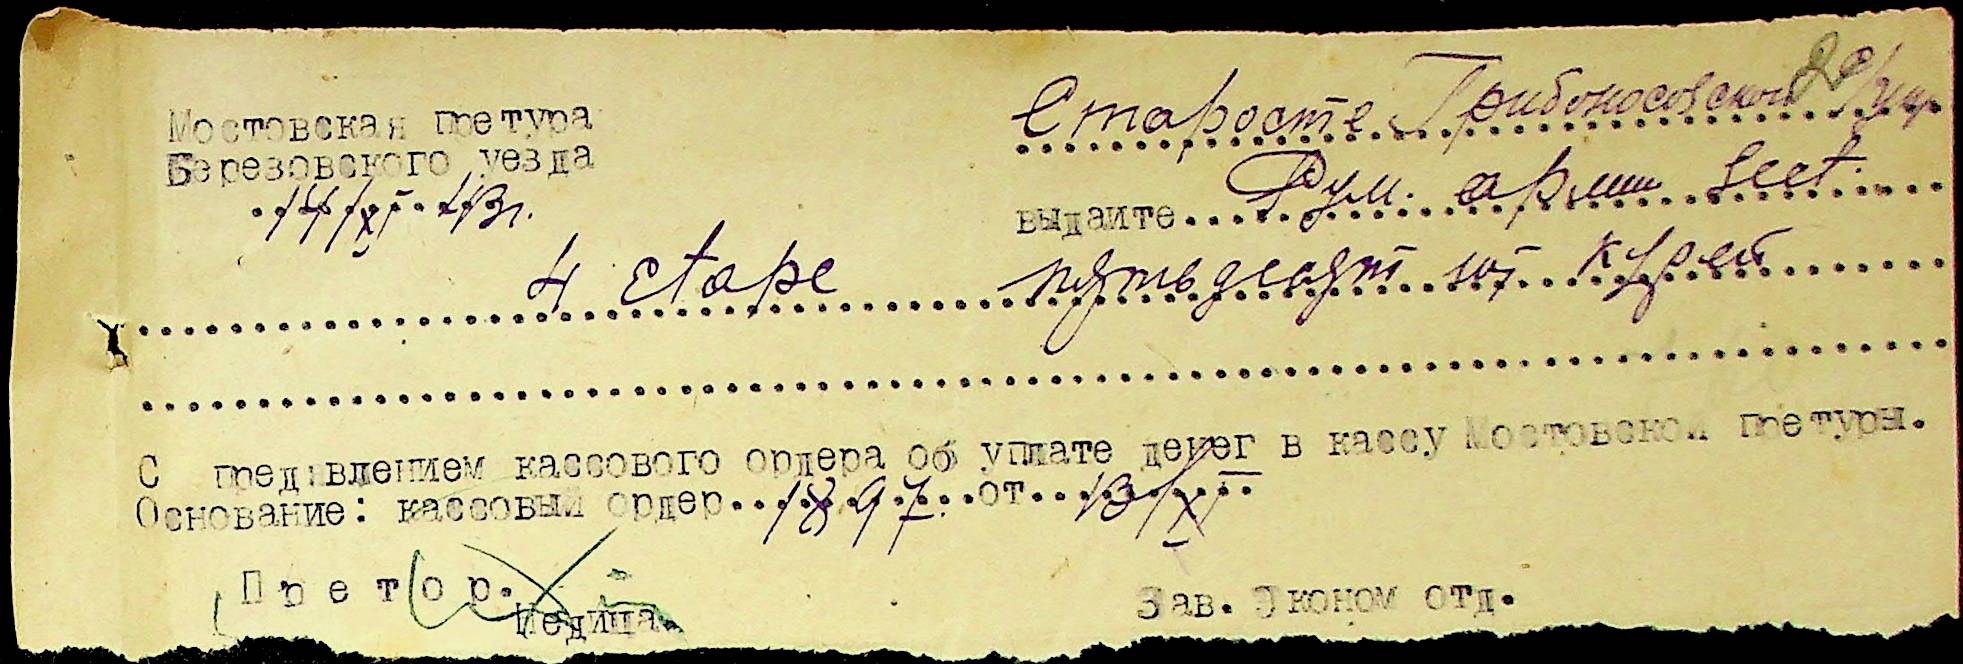 Мостовская претура
Березовского уезда
14/XI 43г.
Старосте Грибоносовской
выдайте Рум. армии Sect.
4 etape пятьдесят шт курей
С предявлением кассового ордера об уплате денег в кассу Мостовской претуры.
Основание: кассовый ордер 1897 от 13/XI
Претор.
Зав. Эконом отд.